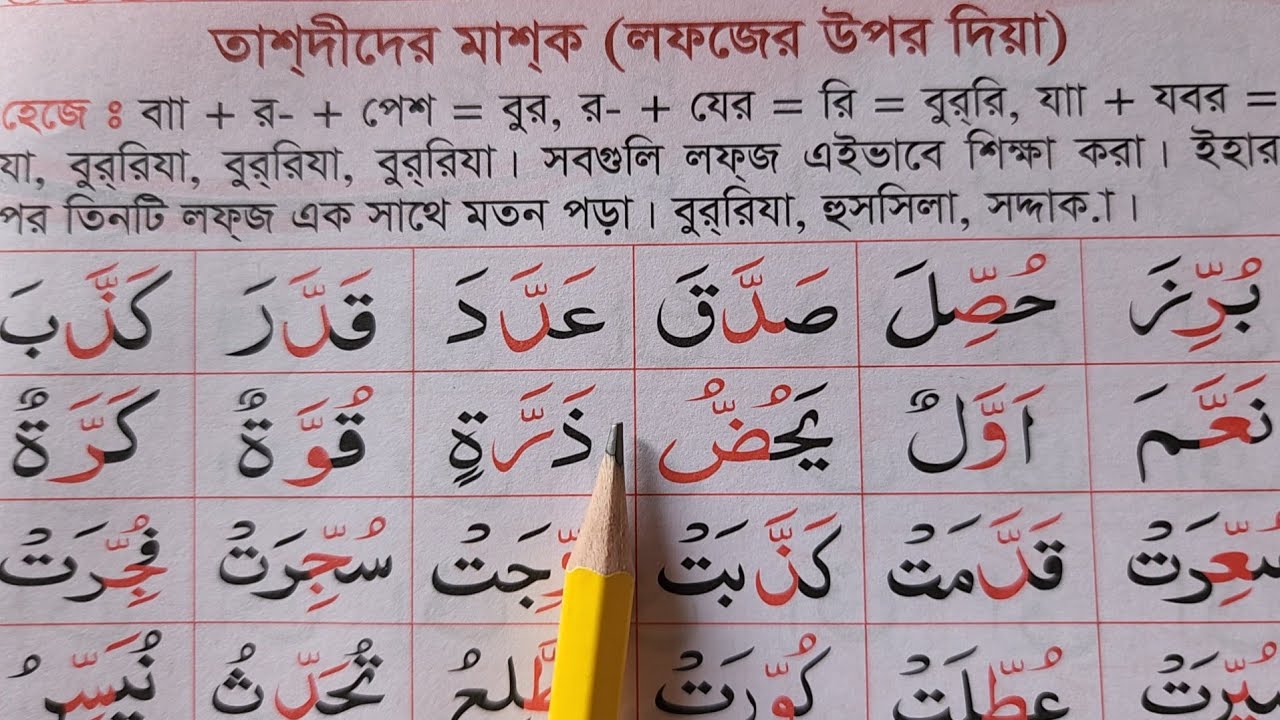 তাশ্দীদের মাশ্ক (লফজের উপর দিয়া)
হেজে ঃ বাা + র- + পেশ = বুর, র- + যের = রি = বুর্রি, যাা + যবর =
যা, বুর্রিযা, বুর্রিযা, বুর্রিযা। সবগুলি লফ্জ এইভাবে শিক্ষা করা। ইহার
পর তিনটি লফ্জ এক সাথে মতন পড়া। বুর্রিযা, হুসসিলা, সদ্দাক.া।
بُرِّزَ حُصِّلَ صَدَّقَ عَدَّدَ قَدَّرَ كَذَّبَ
نَعَّمَ اَوَّلٌ يَحُضُّ ذَرَّةٍ قُوَّةٌ كَرَّةٌ
سُعِّرَتْ قَدَّمَتْ كَذَّبَتْ سُجِّرَتْ فُجِّرَتْ
سُيِّرَتْ عُطِّلَتْ كُوِّرَتْ تُحَدِّثُ نُيَسِّرُ